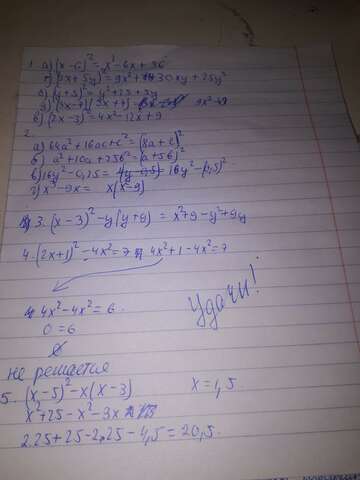 1. а) (x-6)² = x² - 6x + 36
б) (3x+5y)² = 9x² + 30xy + 25y²
б) (y+5)² = y² + 25 + 5y
д) (3x-7)(3x+7) 9x²-49
в) (2x-3)² = 4x² - 12x + 9
2.
а) 64a² + 16ac + c² = (8a+c)²
б) a² + 10a + 25b² = (a+5b)²
в) 16y² - 0,25 = 16y² - 0,5)²
г) x³ - 9x = x(x-9)
3. (x-3)² - y(y+9) = x² + 9 - y² + 9y
4. (2x+1)² - 4x² = 7 4x² + 1 - 4x² = 7
4x² - 4x² = 6
0 = 6
∅
Удачи!
не решается
5. (x-5)² - x(x-3) x = 1,5
x² + 25 - x² - 3x
2.25 + 25 - 2,25 - 4,5 = 20,5.